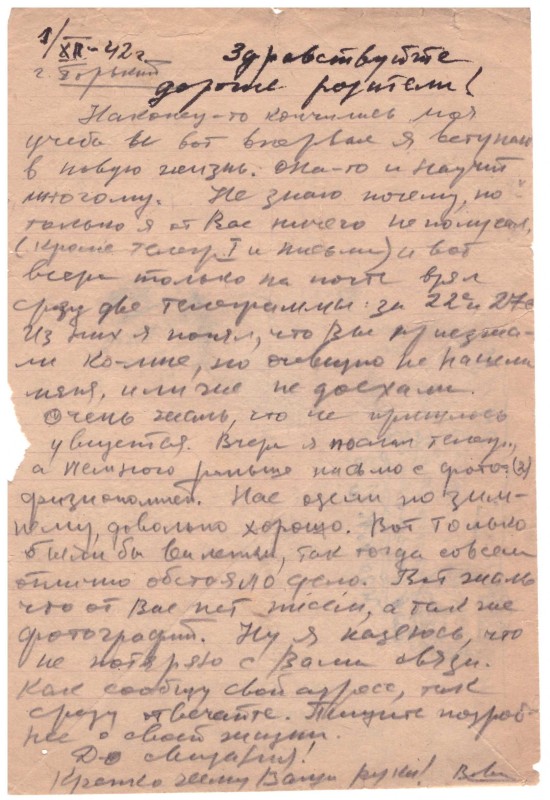 1/XII-42 г.
г. Горький
Здравствуйте
дорогие родители!
Наконец-то кончились моя
учеба и вот впервые я вступаю
в новую жизнь. Она-то и научит
многому. Не знаю почему, но
только я от Вас ничего не получил,
(кроме телегр. I и письма) и вот
вчера только на почте взял
сразу две телеграммы: за 22 и 27
Из них я понял, что Вы приезжа-
ли ко-мне, но очевидно не нашли
меня, или же не доехали.
Очень жаль, что не пришлось
увидется. Вчера я послал телегр.,
а немного раньше письмо с фото- (3)
физиономией. Нас одели по зим-
нему, довольно хорошо. Вот только
были бы валенки, так тогда совсем
отлично обстояло дело. Вот жаль
что от Вас нет писем, а так же
фотографий. Ну я надеюсь, что
не потеряю с Вами связи.
Как сообщу свой адрес, так
сразу отвечайте. Пишите подроб-
нее о своей жизни.
До свидания!
Крепко жму Ваши руки! Вова